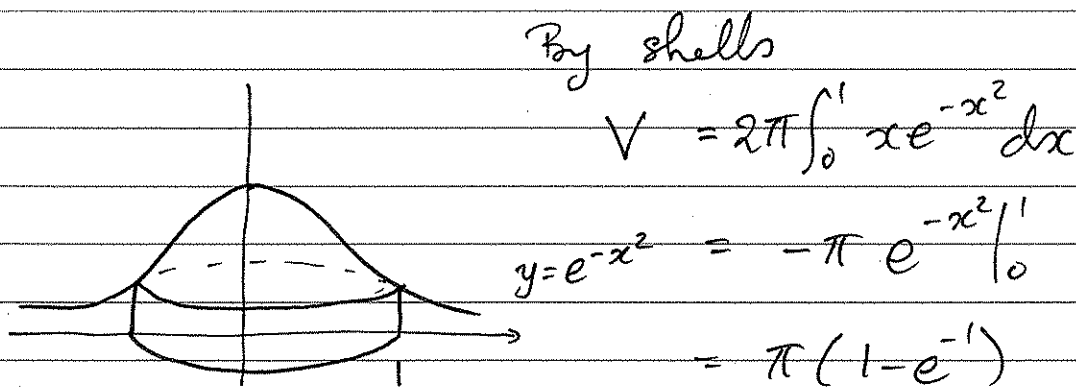 By shells
V = 2π∫₀¹ xe^{-x²} dx
y=e^{-x²} = -π e^{-x²}|₀¹
= π(1-e^{-1})